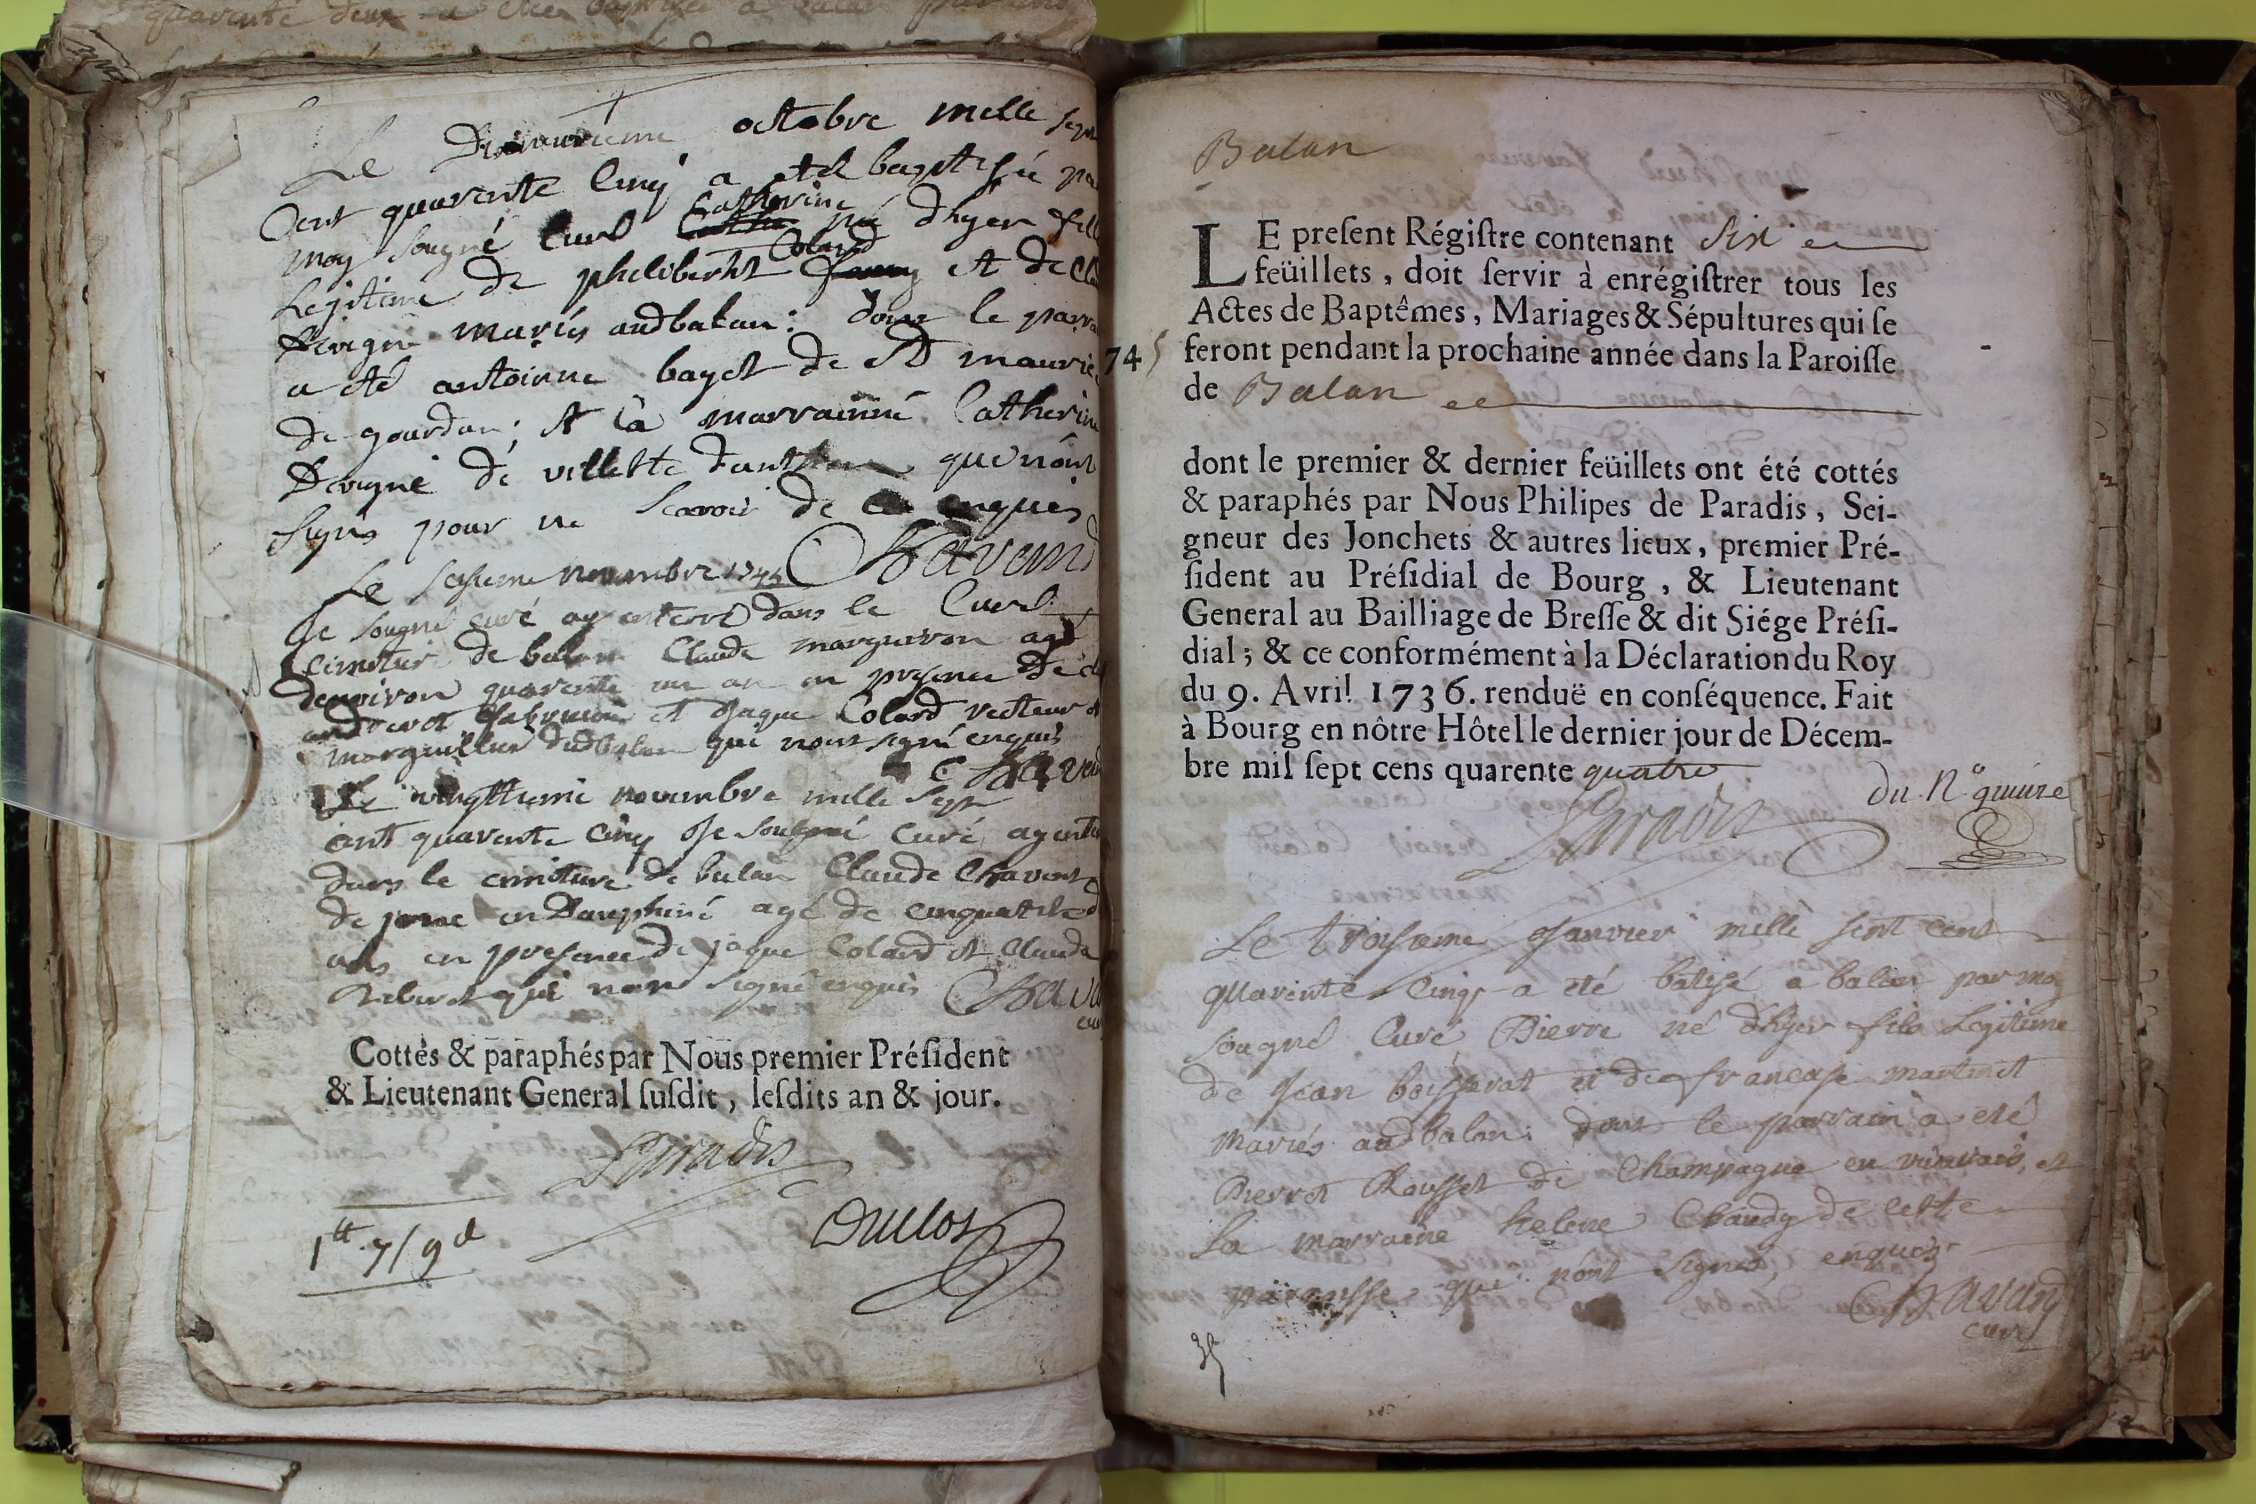 Le octobre mille sept
cent quarente cinq a eté baptisé pa
moy sougné curé Catherine né dhyer fill
Legitime de philiberht Colard et de Cla
mariés audbalan: dont le parra
a eté antoinne bayet de St maurice
de gourdan; et la marrainne Catherine
de villette d'anthon que nont
signé pour ne scavoir de ce enquis
Chavend
Le novembre 1745
Je sougné curé ay enterré dans le curé
cimetiere de balan Claude margueron agé
denviron quarente un an en presence de
et Jaque Colard recteur et
marguillier dudbalan qui nont signé enquis
Chavend
Le vingttieme novembre mille sept
cent quarente cinq Je sougné curé ay enterré
dans le cimetiere de balan Claude Chavent
de en Dauphiné agé de cinquante
ans en presence de jaque Colard et Claude
qui nont signé enquis Chavend
Cottés & paraphés par Nous premier Préſident
& Lieutenant General ſuſdit, leſdits an & jour.
Paradis
Duclos
1tt 7/9d
Balan
LE preſent Régiſtre contenant Six
feüillets, doit ſervir à enrégiſtrer tous les
Actes de Baptêmes, Mariages & Sépultures qui ſe
745 feront pendant la prochaine année dans la Paroiſſe
de Balan
dont le premier & dernier feüillets ont été cottés
& paraphés par Nous Philipes de Paradis, Sei-
gneur des Jonchets & autres lieux, premier Pré-
ſident au Préſidial de Bourg, & Lieutenant
General au Bailliage de Breſſe & dit Siége Préſi-
dial; & ce conformément à la Déclaration du Roy
du 9. Avril 1736. renduë en conſéquence. Fait
à Bourg en nôtre Hôtel le dernier jour de Décem-
bre mil ſept cens quarente quatre
Paradis
du No quinze
Le troisieme Janvier mille sept cent
quarente cinq a eté batisé a balan par moy
sougné Curé Pierre né dhyer fils Legitime
de Jean boisserat et de francase martinet
mariés audbalan: dont le parrain a eté
Pierre Rousset de Champagne en vivarais, et
La marraine helene Chaudy de cette
parroisse que nont signés, enquis
Chavend
curé
35